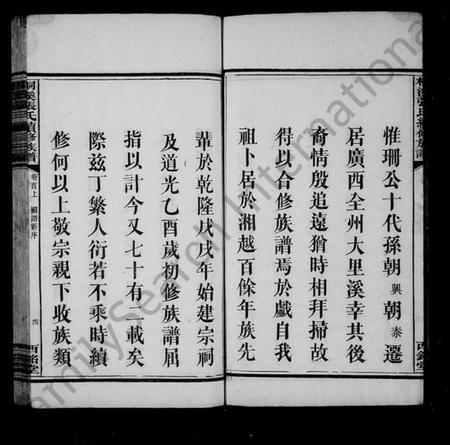 惟珊公十代孫朝興朝泰遷
居廣西全州大里溪幸其後
裔情殷追遠猶時相拜掃故
得以合修族譜焉於戲自我
祖卜居於湘越百餘年族先
輩於乾隆戊戌年始建宗祠
及道光乙酉歲初修族譜屈
指以計今又七十有二載矣
際茲丁繁人衍若不乘時續
修何以上敬宗親下收族類
桐溪張氏續修族譜
卷首上 續譜新序
四
西銘堂
FamilySearch International